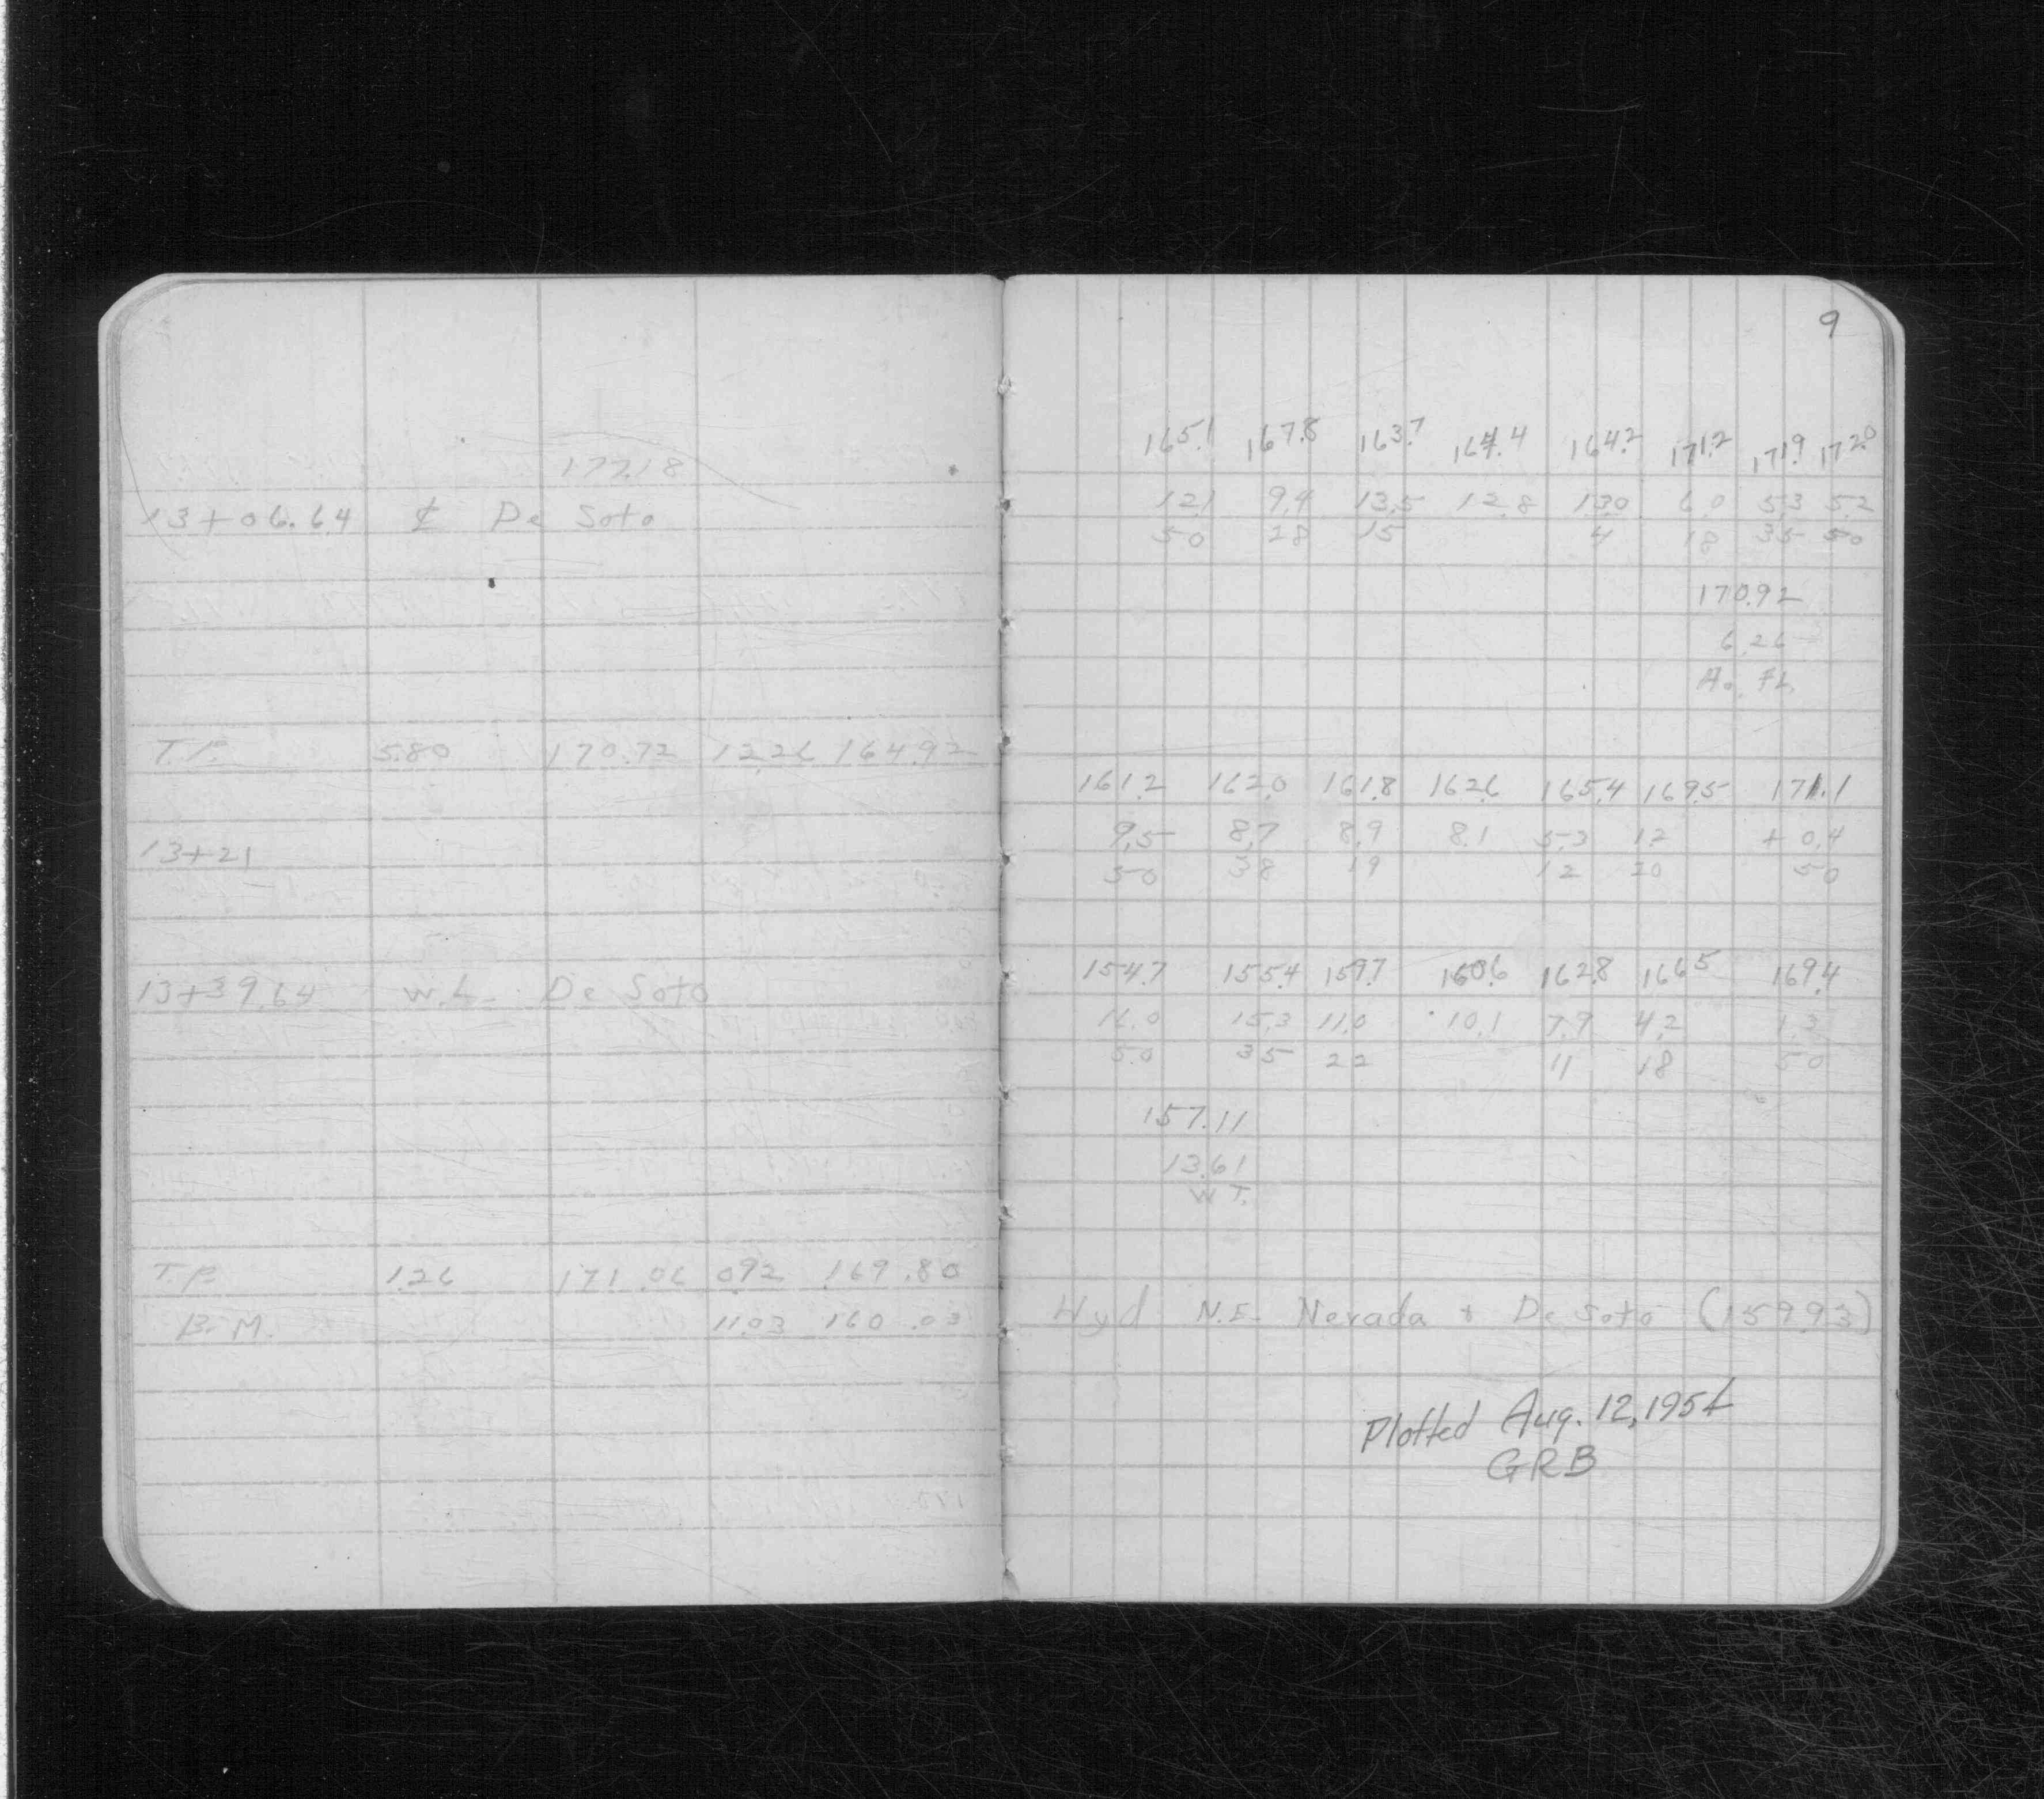 177.18
13+06.64 ₵ De Soto
T.P. 5.80 170.72 12.26 164.92
13+21
13+39.64 W.L. De Soto
T.P. 1.26 171.06 0.92 169.80
B.M. 11.03 160.03
9
165.1 167.8 163.7 164.4 164.2 171.2 171.9 172.0
12.1 9.4 13.5 12.8 13.0 6.0 5.3 5.2
50 28 15 4 18 35 50
170.92
6.26
Ho. FL.
161.2 162.0 161.8 162.6 165.4 169.5 171.1
9.5 8.7 8.9 8.1 5.3 1.2 + 0.4
50 38 19 12 20 50
154.7 155.4 159.7 160.6 162.8 166.5 169.4
16.0 15.3 11.0 10.1 7.9 4.2 1.3
50 35 22 11 18 50
157.11
13.61
W T.
Hyd N.E. Nevada + De Soto (159.93)
Plotted Aug. 12, 1954
GRB